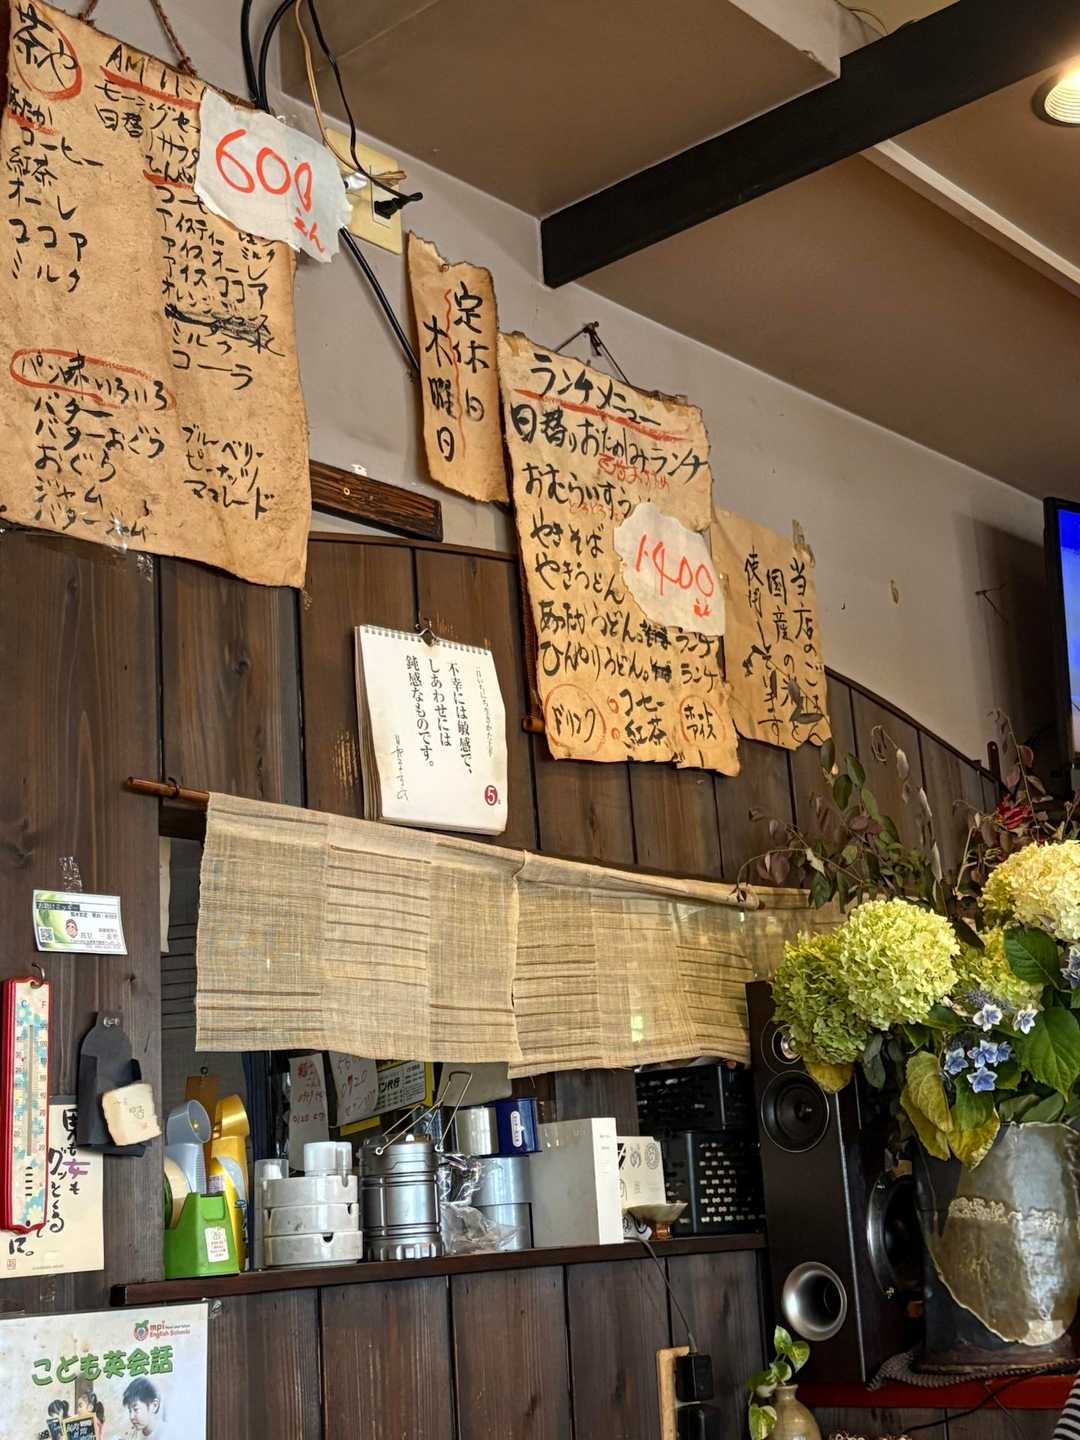 茶や
AM 11
モーニングセ
日替
600
えん
あたたか
コーヒー
紅茶
オーレ
ココア
ミルク
ひんや
コーヒ
アイスティー
アイスオーレ
アイスココア
オレンジジュース
ミルク
コーラ
パン味いろいろ
バター
バターおぐら
おぐら
ジャム
バタージャム
ブルーベリー
ピーナッツ
ママレード
定休日
木曜日
ランチメニュー
日替りおたのしみランチ
おむらいすう
やきそば
やきうどん
あったかうどん。ランチ
ひんやりうどん。ランチ
1400
えん
ドリンク
コーヒー
紅茶
ホット
アイス
当店のごはん
国産の
使用しています
不幸には敏感で、
しあわせには
鈍感なものです。
5
お助けミッキー
C
F
男も女も
グッとくる
に。
mpi
English Schools
こども英会話